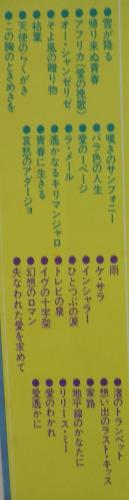 ●雪が降る
●帰り来ぬ青春
●アフリカ(愛の挽歌)
●オー・シャンゼリゼ
●そよ風の贈り物
●枯葉
●天使のらくがき
●この胸のときめきを
●嘆きのサンフォニー
●バラ色の人生
●愛の一ページ
●ラ・メール
●遥かなるキリマンジャロ
●青春に生きる
●哀愁のアダージョ
●雨
●ケ・サラ
●インシャラー
●ひとつぶの涙
●トレビの泉
●イヴの十字架
●幻想のロマン
●失なわれた愛を求めて
●渚のトランペット
●想い出のラスト・キッス
●家路
●地平線のかなたに
●リリース・ミー
●愛のわかれ
●愛遥かに